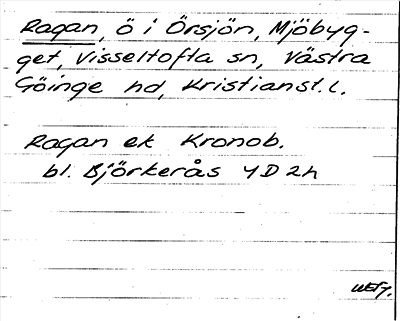 Ragan, ö i Örsjön, Mjöbyg-
get, Visseltofta sn, Västra
Göinge hd, Kristianst. l.
Ragan ek Kronob.
bl. Björkerås 4D2h